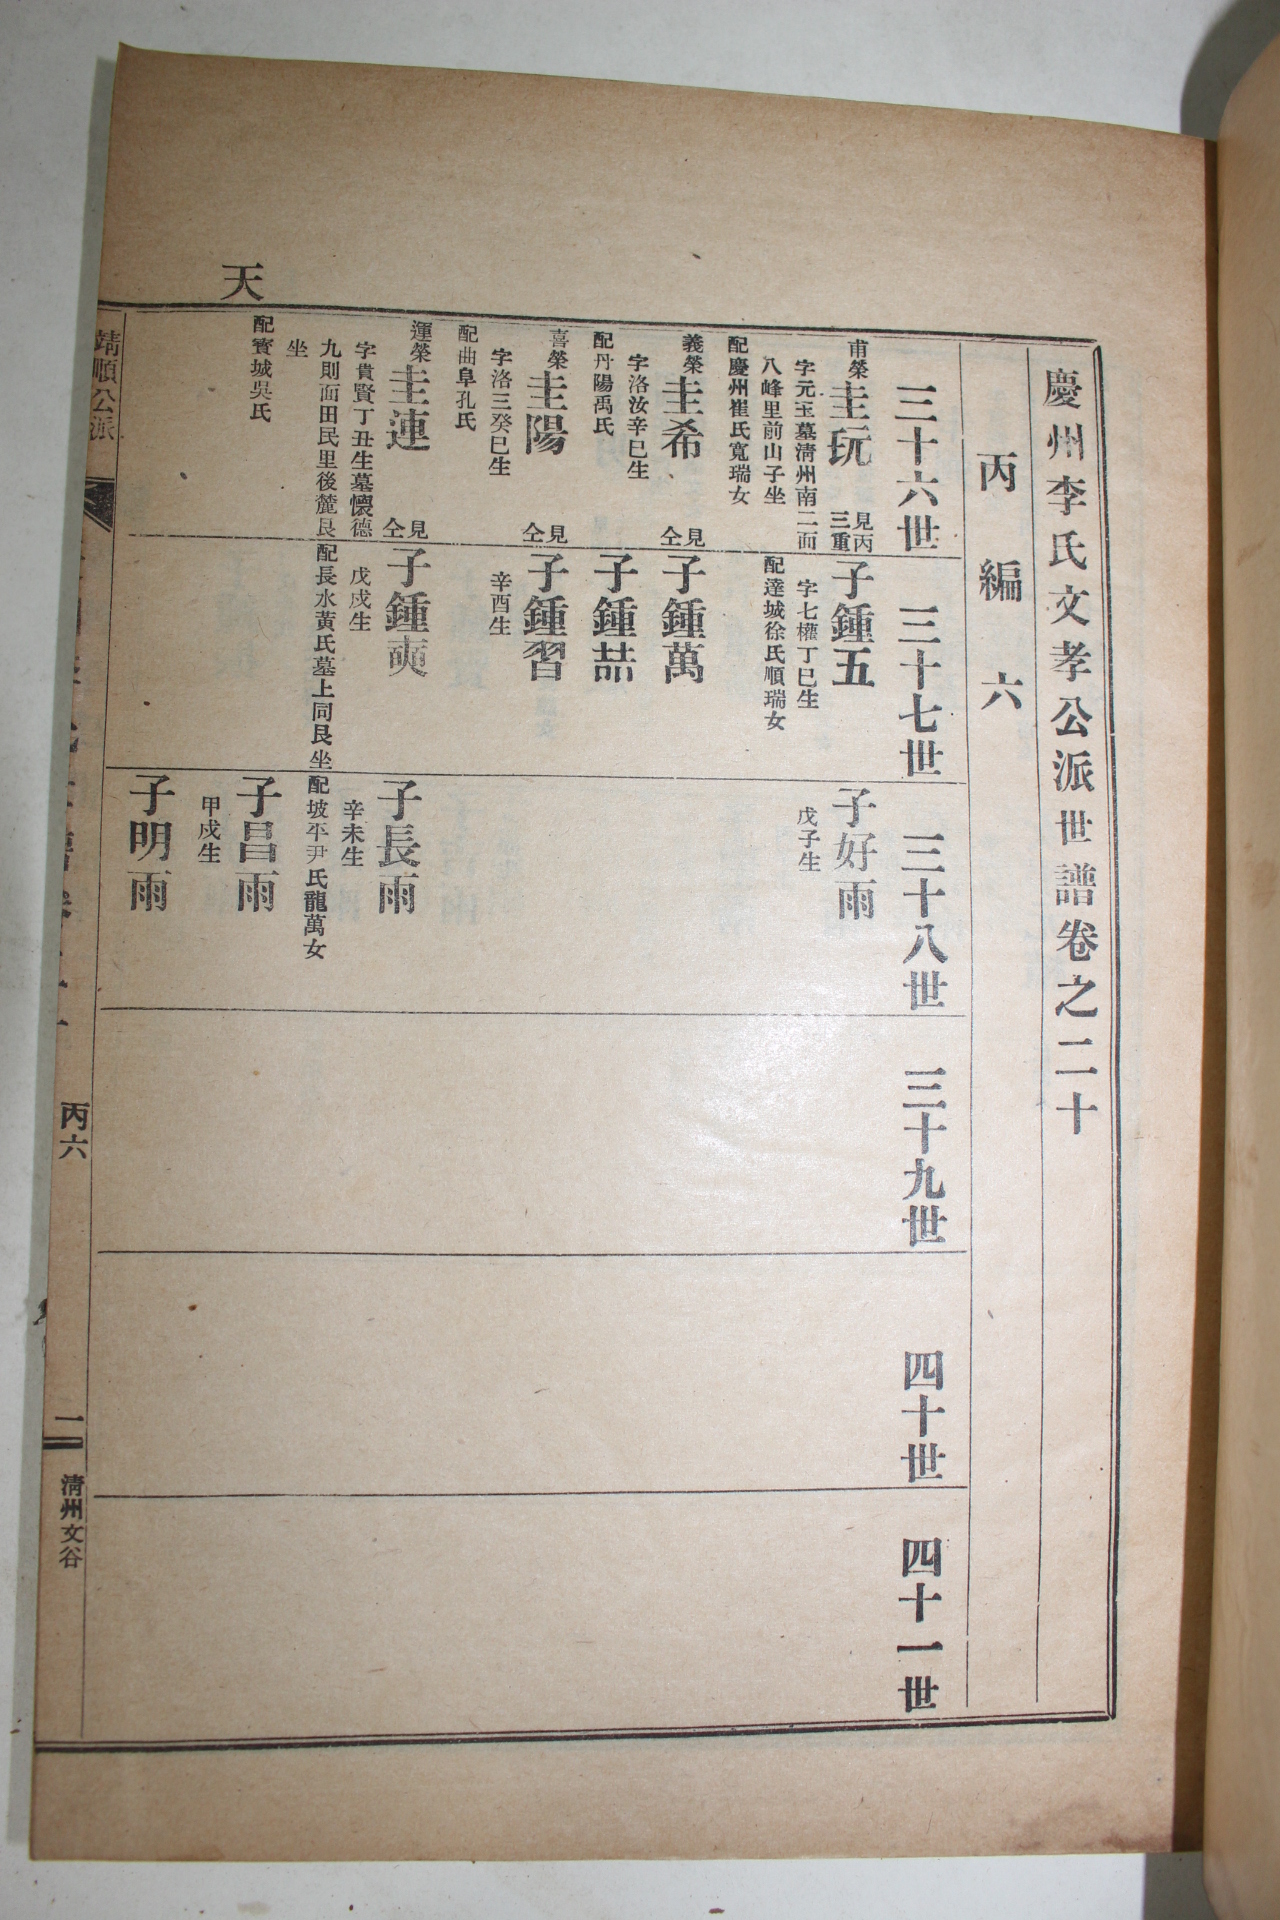 慶州李氏文孝公派世譜卷之二十
丙編六
三十六世
三十七世
三十八世
三十九世
四十世
四十一世
甫榮
圭玩
見丙
三重
字元玉墓淸州南二面
八峰里前山子坐
配慶州崔氏寬瑞女
子鍾五
字七權丁巳生
配達城徐氏順瑞女
子好雨
戊子生
義榮
圭希
見
仝
字洛汝辛巳生
配丹陽禹氏
子鍾萬
子鍾喆
喜榮
圭陽
見
仝
字洛三癸巳生
配曲阜孔氏
子鍾習
辛酉生
運榮
圭連
見
仝
字貴賢丁丑生墓懷德
九則面田民里後麓艮
坐
配寶城吳氏
子鍾奭
戊戌生
配長水黃氏墓上同艮坐
子長雨
辛未生
配坡平尹氏龍萬女
子昌雨
甲戌生
子明雨
天
靖順公派
丙六
一
淸州文谷